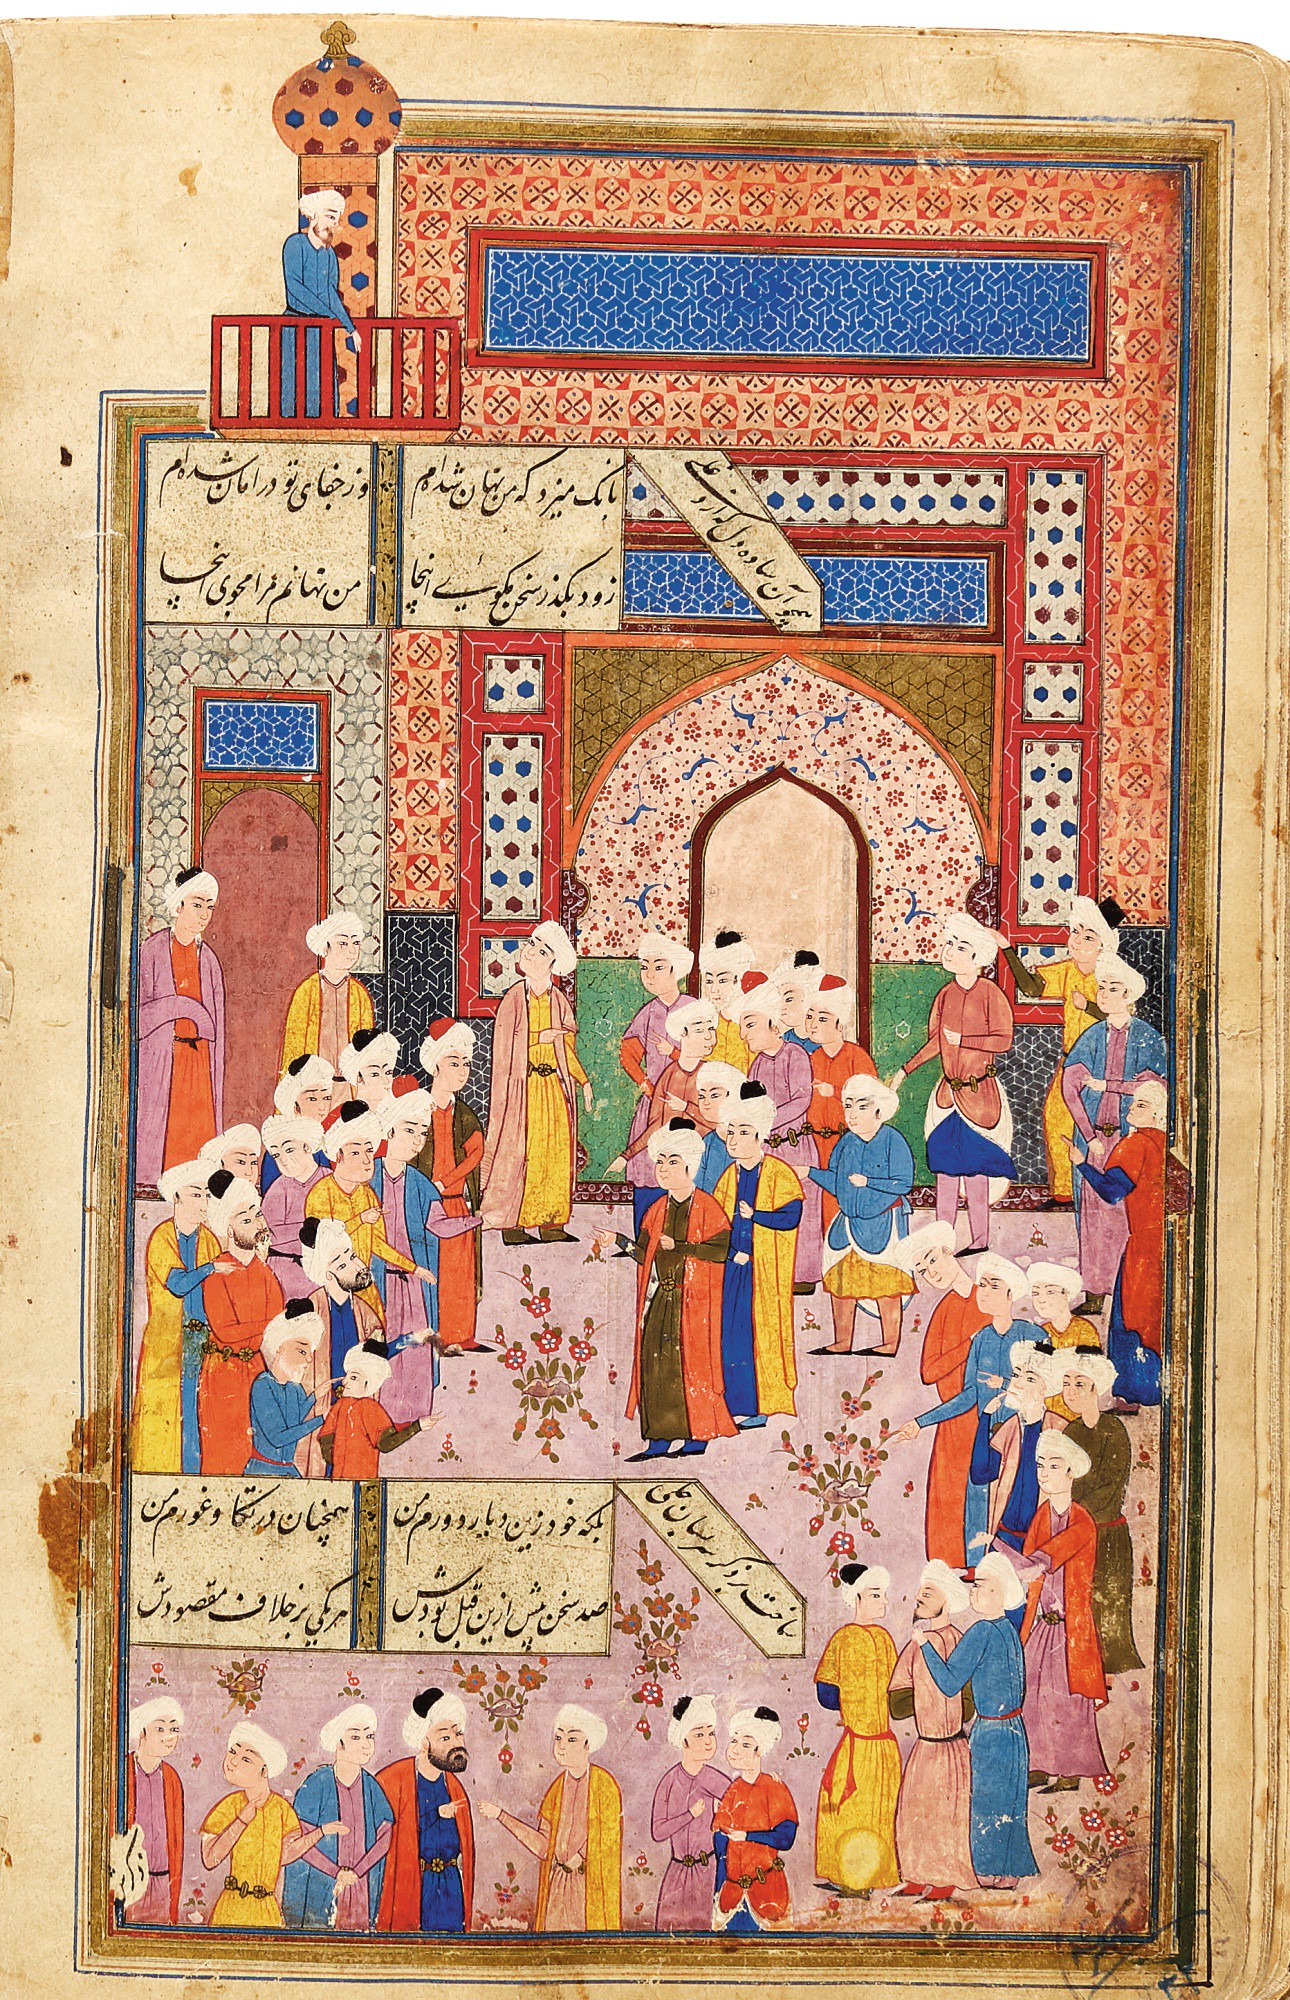 همچو آن ساده دل که از
بانک میزد که من نهان شده‌ام وز جفای تو در امان شده‌ام
زود بگذر سخن مگوی اینجا من نهانم مرا مجوی اینجا
بلکه خود زین دیار دورم من همچنان در تکاو غورم من
صد سخن بیش ازین قبل بودش هر یکی بر خلاف مقصودش